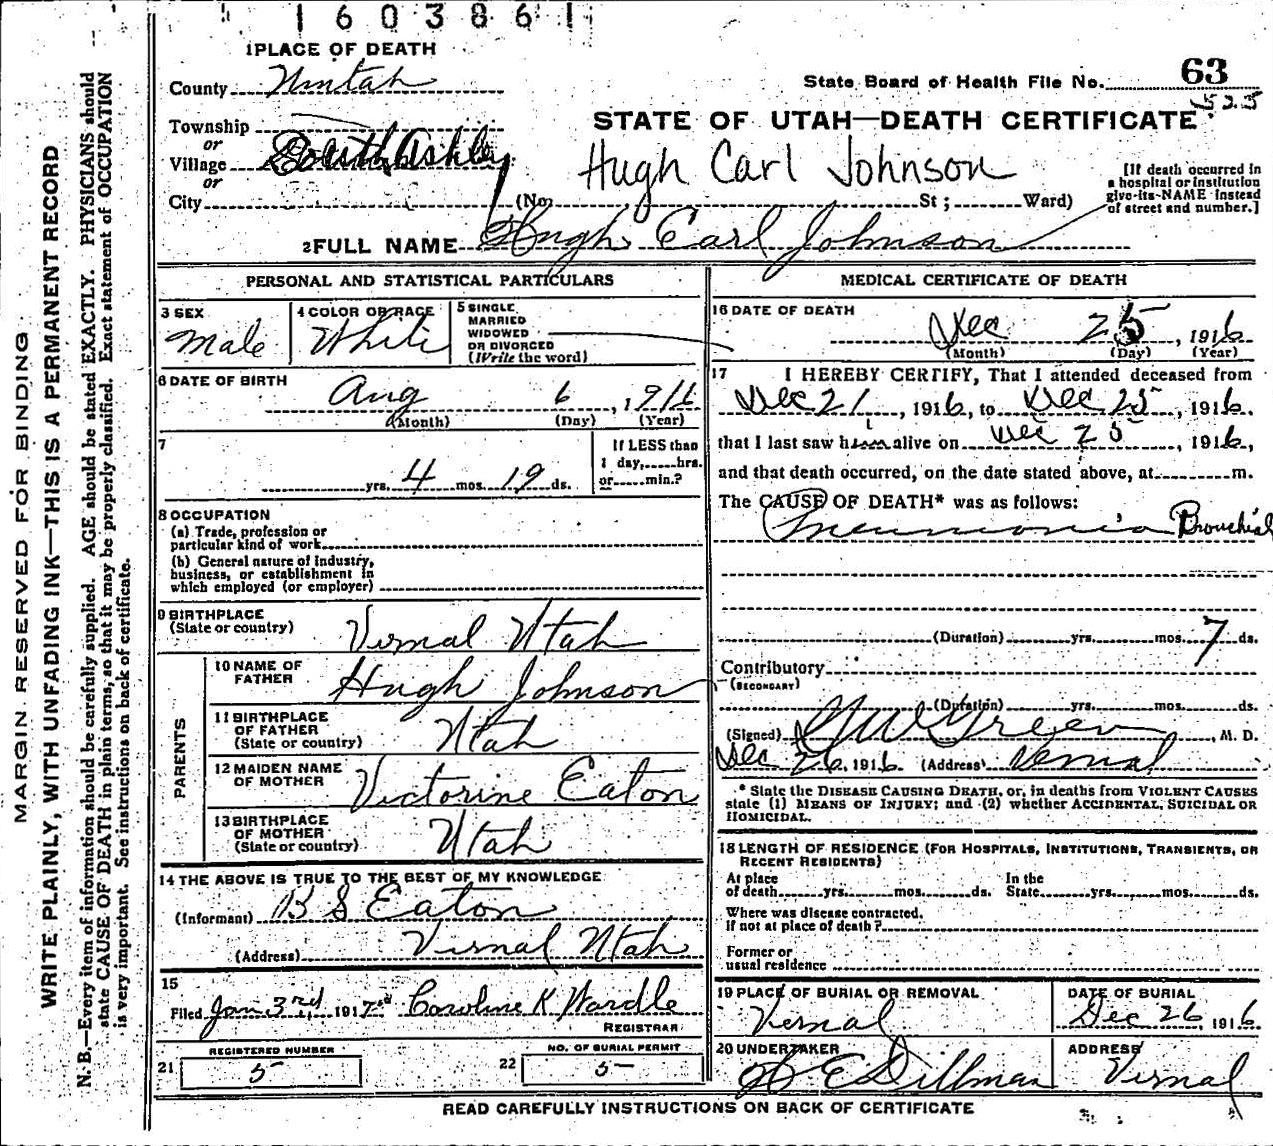 1603861
1 PLACE OF DEATH
County Uintah
State Board of Health File No. 63
525
Township
or
Village South Ashley
or
City (No. St; Ward)
STATE OF UTAH—DEATH CERTIFICATE
Hugh Carl Johnson
[If death occurred in
a hospital or institution
give its NAME instead
of street and number.]
2 FULL NAME Hugh Carl Johnson
PERSONAL AND STATISTICAL PARTICULARS
3 SEX
Male
4 COLOR OR RACE
White
5 SINGLE,
MARRIED
WIDOWED
OR DIVORCED
(Write the word)
6 DATE OF BIRTH
Aug 6, 1916
(Month) (Day) (Year)
7
yrs. 4 mos. 19 ds.
If LESS than
1 day,......hrs.
or......min.?
8 OCCUPATION
(a) Trade, profession or
particular kind of work
(b) General nature of industry,
business, or establishment in
which employed (or employer)
9 BIRTHPLACE
(State or country) Vernal Utah
PARENTS
10 NAME OF
FATHER Hugh Johnson
11 BIRTHPLACE
OF FATHER
(State or country) Utah
12 MAIDEN NAME
OF MOTHER Victorine Eaton
13 BIRTHPLACE
OF MOTHER
(State or country) Utah
14 THE ABOVE IS TRUE TO THE BEST OF MY KNOWLEDGE
(Informant) B S Eaton
(Address) Vernal Utah
15
Filed Jan 3rd, 1917 Caroline K Wardle
REGISTRAR
21 REGISTERED NUMBER
5
22 NO. OF BURIAL PERMIT
5
MEDICAL CERTIFICATE OF DEATH
16 DATE OF DEATH
Dec 25, 1916
(Month) (Day) (Year)
17 I HEREBY CERTIFY, That I attended deceased from
Dec 21, 1916, to Dec 25, 1916.
that I last saw him alive on Dec 25, 1916,
and that death occurred, on the date stated above, at......m.
The CAUSE OF DEATH* was as follows:
Pneumonia Bronchial
(Duration) yrs. mos. 7 ds.
Contributory
(SECONDARY)
(Duration) yrs. mos. ds.
(Signed) Green, M. D.
Dec 26, 1916. (Address) Vernal
* State the DISEASE CAUSING DEATH, or, in deaths from VIOLENT CAUSES
state (1) MEANS OF INJURY; and (2) whether ACCIDENTAL, SUICIDAL OR
HOMICIDAL.
18 LENGTH OF RESIDENCE (FOR HOSPITALS, INSTITUTIONS, TRANSIENTS, OR
RECENT RESIDENTS)
At place In the
of death yrs. mos. ds. State yrs. mos. ds.
Where was disease contracted,
If not at place of death?
Former or
usual residence
19 PLACE OF BURIAL OR REMOVAL
Vernal
DATE OF BURIAL
Dec 26, 1916.
20 UNDERTAKER
E Dillman
ADDRESS
Vernal
READ CAREFULLY INSTRUCTIONS ON BACK OF CERTIFICATE
MARGIN RESERVED FOR BINDING
WRITE PLAINLY, WITH UNFADING INK—THIS IS A PERMANENT RECORD
N. B.—Every item of information should be carefully supplied. AGE should be stated EXACTLY. PHYSICIANS should
state CAUSE OF DEATH in plain terms, so that it may be properly classified. Exact statement of OCCUPATION
is very important. See instructions on back of certificate.